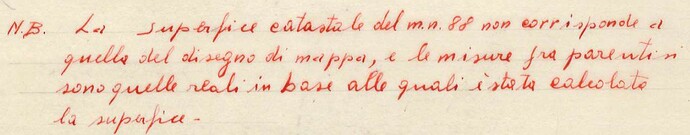 N.B. La superfice catastale del m.n. 88 non corrisponde a
quella del disegno di mappa, e le misure fra parentisi
sono quelle reali in base alle quali è stata calcolata
la superfice -